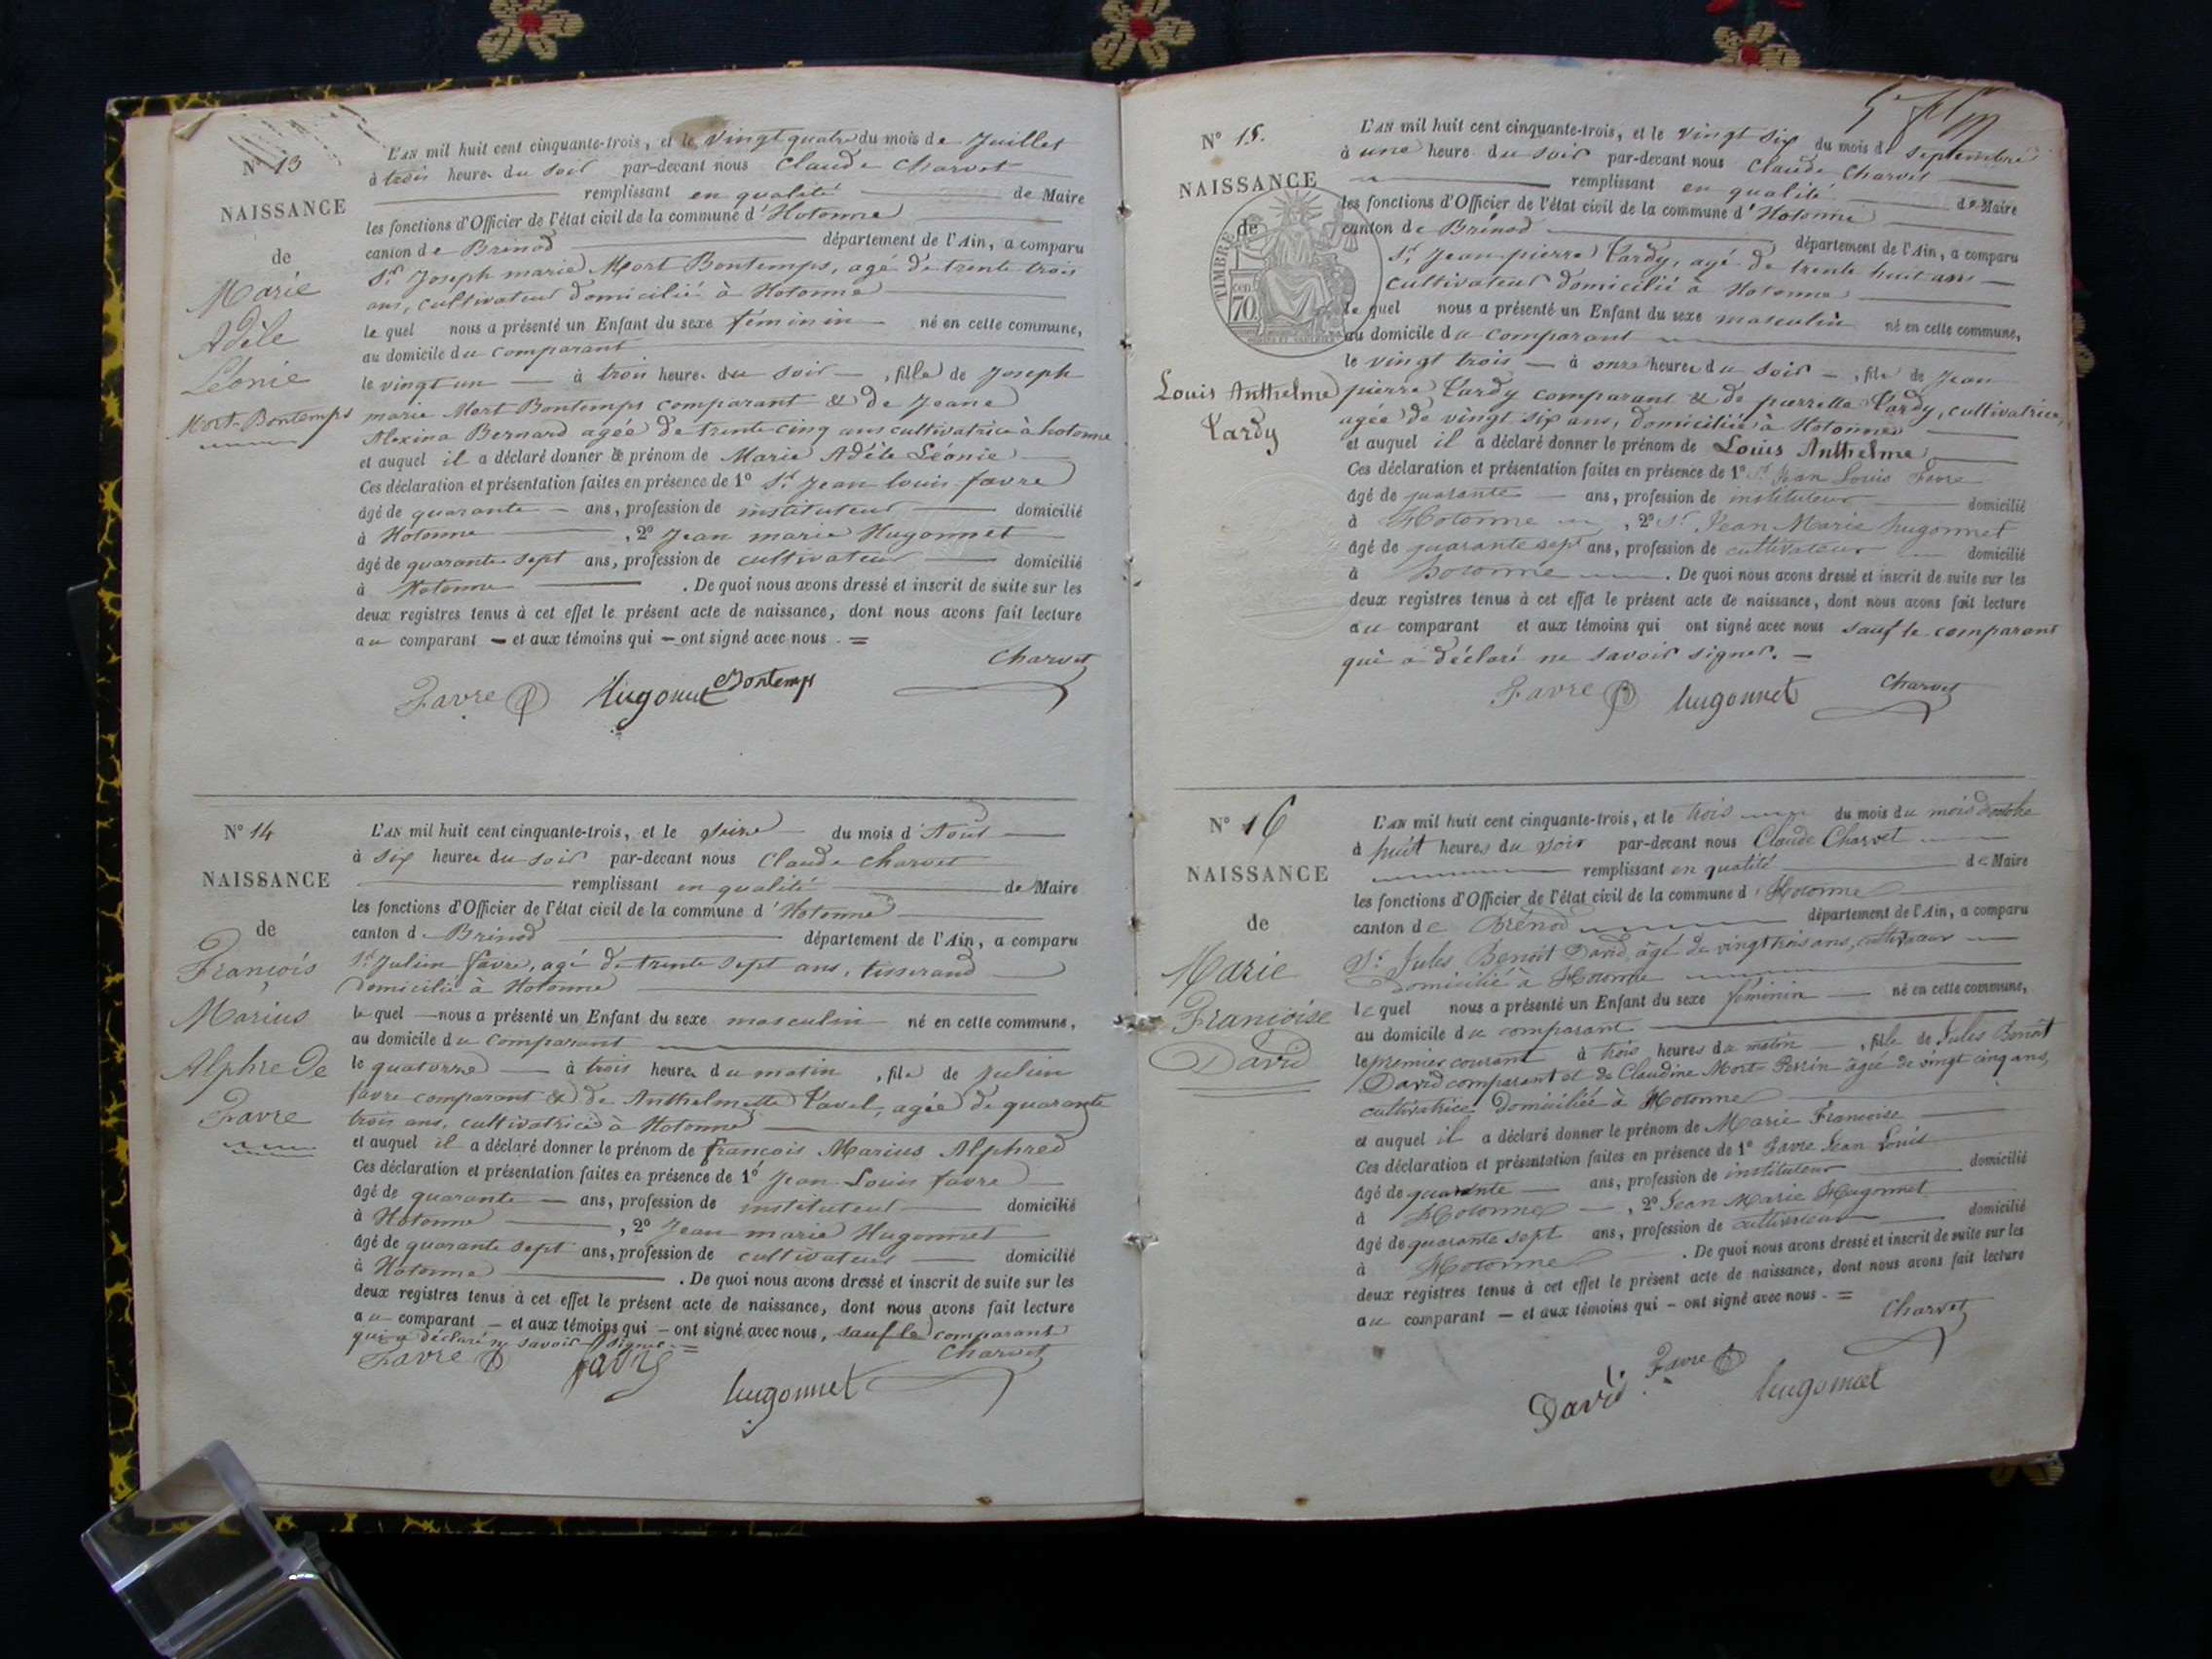 N° 13
NAISSANCE
de
Marie
Adèle
Léonie
Mort-Bontemps
L'AN mil huit cent cinquante-trois, et le vingt quatre du mois de Juillet
à trois heures du soir par-devant nous Claude Charvet
remplissant en qualité de Maire
les fonctions d'Officier de l'état civil de la commune d'Hotonne
canton de Brénod département de l'Ain, a comparu
Sr Joseph marie Mort Bontemps, agé de trente trois
ans, cultivateur domicilié à Hotonne
le quel nous a présenté un Enfant du sexe féminin né en cette commune,
au domicile du comparant
le vingt un à trois heures du soir, fille de Joseph
marie Mort Bontemps comparant & de Jeane
Alexina Bernard agée de trente cinq ans cultivatrice à hotonne
et auquel il a déclaré donner le prénom de Marie Adèle Léonie
Ces déclaration et présentation faites en présence de 1° Sr Jean louis favre
âgé de quarante ans, profession de instituteur domicilié
à Hotonne, 2° Jean marie Hugonnet
âgé de quarante sept ans, profession de cultivateur domicilié
à Hotonne. De quoi nous avons dressé et inscrit de suite sur les
deux registres tenus à cet effet le présent acte de naissance, dont nous avons fait lecture
au comparant et aux témoins qui ont signé avec nous. =
Charvet
Favre Hugonnet Bontemps
N° 14
NAISSANCE
de
François
Marius
Alphrede
Favre
L'AN mil huit cent cinquante-trois, et le seize du mois d'Aout
à six heures du soir par-devant nous Claude Charvet
remplissant en qualité de Maire
les fonctions d'Officier de l'état civil de la commune d'Hotonne
canton de Brénod département de l'Ain, a comparu
Sr Julien favre, agé de trente sept ans, tisserand
domicilié à Hotonne
le quel nous a présenté un Enfant du sexe masculin né en cette commune,
au domicile du comparant
le quatorze à trois heures du matin, fils de Julien
favre comparant & de Anthelmette Favel, agée de quarante
trois ans, cultivatrice à Hotonne
et auquel il a déclaré donner le prénom de françois Marius Alphred
Ces déclaration et présentation faites en présence de 1° Jean Louis favre
âgé de quarante ans, profession de instituteur domicilié
à Hotonne, 2° Jean marie Hugonnet
âgé de quarante sept ans, profession de cultivateur domicilié
à Hotonne. De quoi nous avons dressé et inscrit de suite sur les
deux registres tenus à cet effet le présent acte de naissance, dont nous avons fait lecture
au comparant et aux témoins qui ont signé avec nous, sauf le comparant
qui a déclaré ne savoir signer. =
Favre favre Charvet
hugonnet
N° 15.
NAISSANCE
de
TIMBRE
70
Louis Anthelme
Tardy
L'AN mil huit cent cinquante-trois, et le vingt six du mois de septembre
à une heure du soir par-devant nous Claude Charvet
remplissant en qualité de Maire
les fonctions d'Officier de l'état civil de la commune d'Hotonne
canton de Brénod département de l'Ain, a comparu
Sr Jean-pierre Tardy, agé de trente huit ans
cultivateur domicilié à Hotonne
le quel nous a présenté un Enfant du sexe masculin né en cette commune,
au domicile du comparant
le vingt trois à onze heures du soir, fils de Jean
pierre Tardy comparant & de pierrette Tardy, cultivatrice,
agée de vingt six ans, domiciliée à Hotonne
et auquel il a déclaré donner le prénom de Louis Anthelme
Ces déclaration et présentation faites en présence de 1° Sr Jean Louis Favre
âgé de quarante ans, profession de instituteur domicilié
à Hotonne, 2° Sr Jean Marie hugonnet
âgé de quarante sept ans, profession de cultivateur domicilié
à hotonne. De quoi nous avons dressé et inscrit de suite sur les
deux registres tenus à cet effet le présent acte de naissance, dont nous avons fait lecture
au comparant et aux témoins qui ont signé avec nous sauf le comparant
qui a déclaré ne savoir signer.
Favre hugonnet Charvet
N° 16
NAISSANCE
de
Marie
Françoise
David
L'AN mil huit cent cinquante-trois, et le trois du mois du mois d'octobre
à huit heures du soir par-devant nous Claude Charvet
remplissant en qualité de Maire
les fonctions d'Officier de l'état civil de la commune d'Hotonne
canton de Brénod département de l'Ain, a comparu
Sr Jules Benoit David, âgé de vingt trois ans, cultivateur
Domicilié à Hotonne
lequel nous a présenté un Enfant du sexe féminin né en cette commune,
au domicile du comparant
le premier courant à trois heures du matin, fille de Jules Benoit
David comparant et de Claudine Mort-Perrin âgée de vingt cinq ans,
cultivatrice domiciliée à Hotonne
et auquel il a déclaré donner le prénom de Marie Francoise
Ces déclaration et présentation faites en présence de 1° Favre Jean Louis
âgé de quarante ans, profession de instituteur domicilié
à Hotonne, 2° Jean Marie Hugonnet
âgé de quarante sept ans, profession de cultivateur domicilié
à Hotonne. De quoi nous avons dressé et inscrit de suite sur les
deux registres tenus à cet effet le présent acte de naissance, dont nous avons fait lecture
au comparant et aux témoins qui ont signé avec nous. =
Charvet
David Favre hugonnet